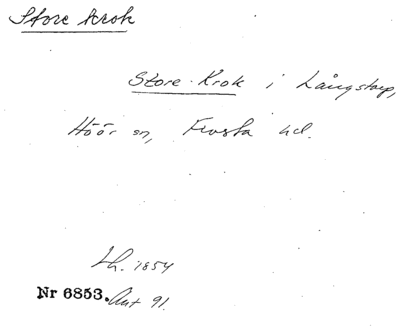 Store krok
Store-Krok i Långstorp,
Höör sn, Frosta hd.
Lh. 1854
Nr 6853. Ant 91.